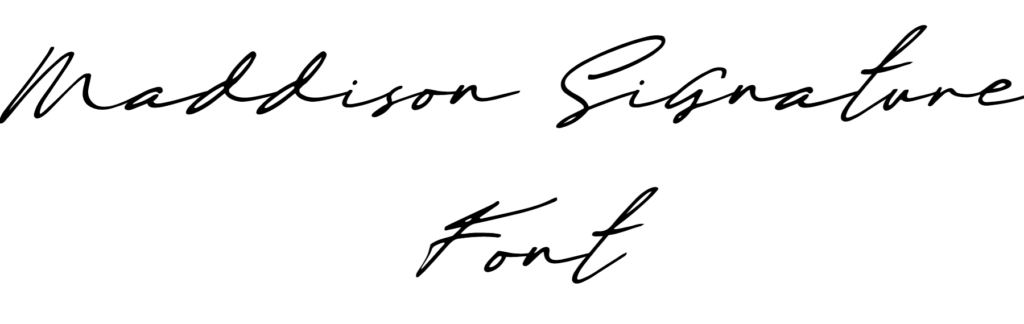 Maddison Signature
Font